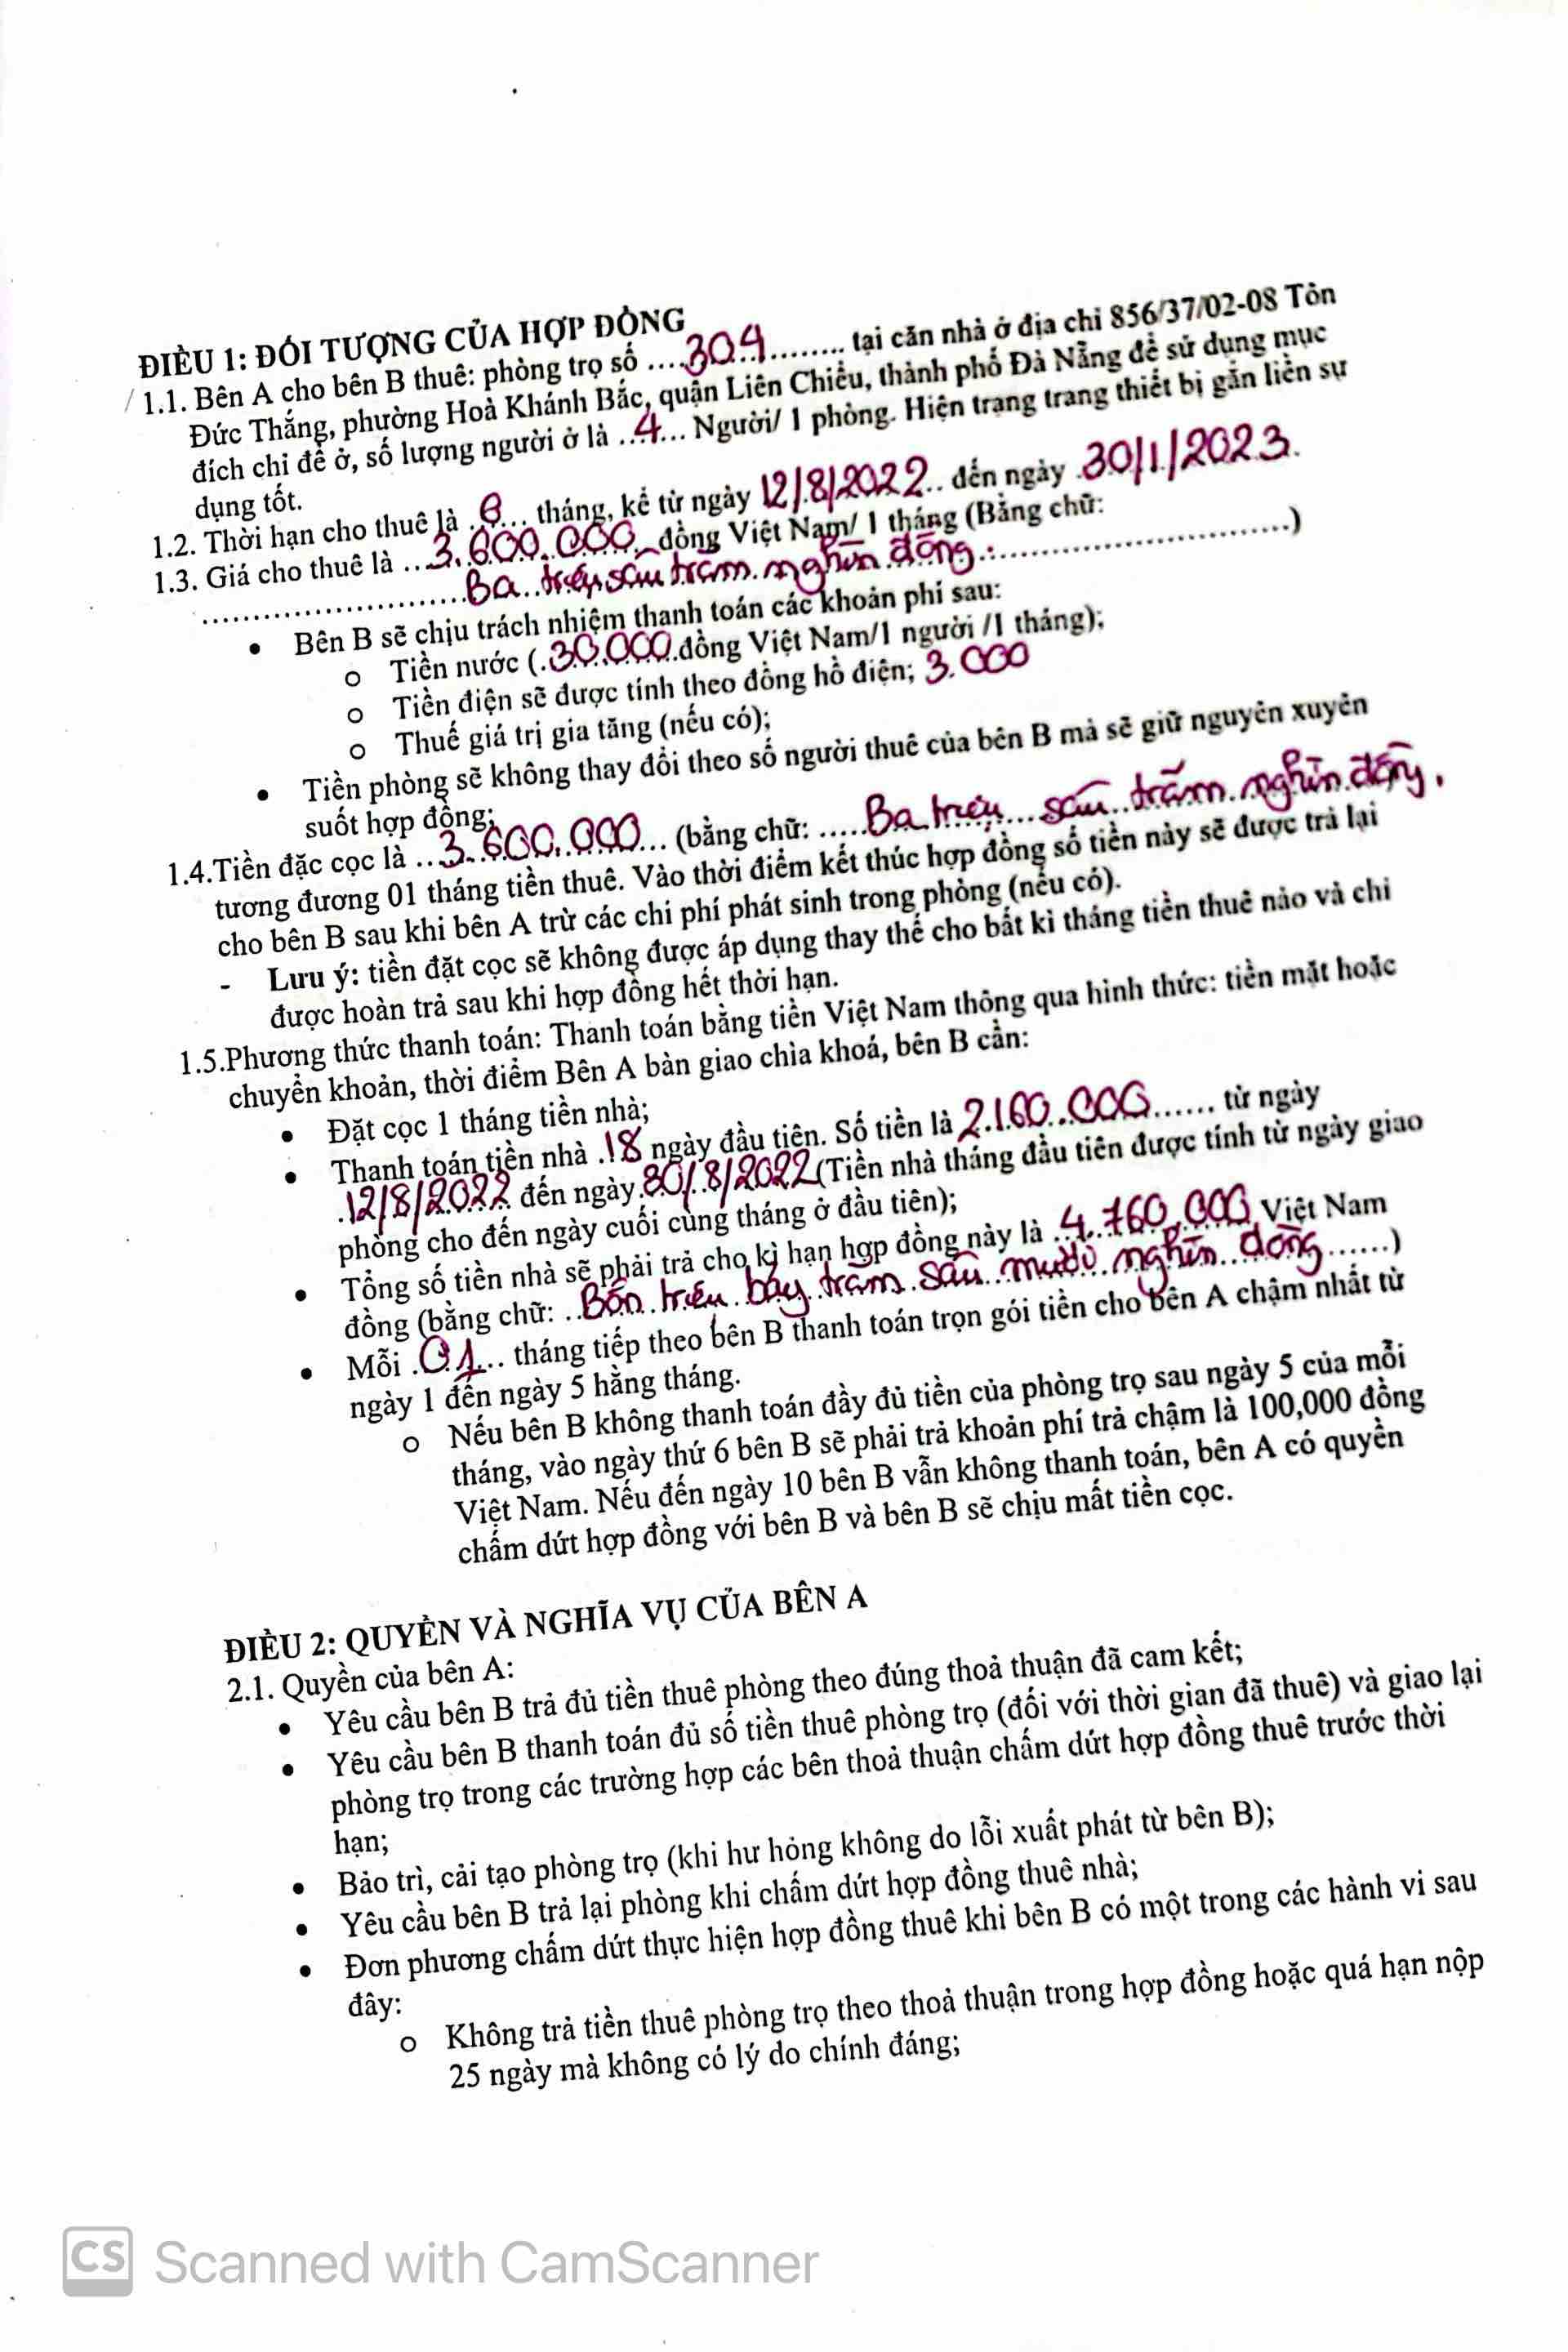 ĐIỀU 1: ĐỐI TƯỢNG CỦA HỢP ĐỒNG
1.1. Bên A cho bên B thuê: phòng trọ số ....304.......... tại căn nhà ở địa chỉ 856/37/02-08 Tôn
Đức Thắng, phường Hoà Khánh Bắc, quận Liên Chiểu, thành phố Đà Nẵng để sử dụng mục
đích chỉ để ở, số lượng người ở là ..4... Người/ 1 phòng. Hiện trạng trang thiết bị gắn liền sự
dụng tốt.
1.2. Thời hạn cho thuê là .6.... tháng, kể từ ngày 12/8/2022.. đến ngày .30/1/2023.
1.3. Giá cho thuê là ...3.600.000 đồng Việt Nam/ 1 tháng (Bằng chữ:
........................Ba triệu sáu trăm nghìn đồng...........................)
• Bên B sẽ chịu trách nhiệm thanh toán các khoản phí sau:
o Tiền nước (.30.000.đồng Việt Nam/1 người /1 tháng);
o Tiền điện sẽ được tính theo đồng hồ điện; 3.000
o Thuế giá trị gia tăng (nếu có);
• Tiền phòng sẽ không thay đổi theo số người thuê của bên B mà sẽ giữ nguyên xuyên
suốt hợp đồng;
1.4.Tiền đặc cọc là ..3.600.000... (bằng chữ: .....Ba triệu sáu trăm nghìn đồng.
tương đương 01 tháng tiền thuê. Vào thời điểm kết thúc hợp đồng số tiền này sẽ được trả lại
cho bên B sau khi bên A trừ các chi phí phát sinh trong phòng (nếu có).
- Lưu ý: tiền đặt cọc sẽ không được áp dụng thay thế cho bất kì tháng tiền thuê nào và chỉ
được hoàn trả sau khi hợp đồng hết thời hạn.
1.5.Phương thức thanh toán: Thanh toán bằng tiền Việt Nam thông qua hình thức: tiền mặt hoặc
chuyển khoản, thời điểm Bên A bàn giao chìa khoá, bên B cần:
• Đặt cọc 1 tháng tiền nhà;
• Thanh toán tiền nhà .18 ngày đầu tiên. Số tiền là 2.160.000...... từ ngày
.12/8/2022 đến ngày.30/8/2022(Tiền nhà tháng đầu tiên được tính từ ngày giao
phòng cho đến ngày cuối cùng tháng ở đầu tiên);
• Tổng số tiền nhà sẽ phải trả cho kì hạn hợp đồng này là .4.760.000 Việt Nam
đồng (bằng chữ: ..Bốn triệu bảy trăm sáu mươi nghìn đồng......)
• Mỗi .01... tháng tiếp theo bên B thanh toán trọn gói tiền cho bên A chậm nhất từ
ngày 1 đến ngày 5 hằng tháng.
o Nếu bên B không thanh toán đầy đủ tiền của phòng trọ sau ngày 5 của mỗi
tháng, vào ngày thứ 6 bên B sẽ phải trả khoản phí trả chậm là 100,000 đồng
Việt Nam. Nếu đến ngày 10 bên B vẫn không thanh toán, bên A có quyền
chấm dứt hợp đồng với bên B và bên B sẽ chịu mất tiền cọc.
ĐIỀU 2: QUYỀN VÀ NGHĨA VỤ CỦA BÊN A
2.1. Quyền của bên A:
• Yêu cầu bên B trả đủ tiền thuê phòng theo đúng thoả thuận đã cam kết;
• Yêu cầu bên B thanh toán đủ số tiền thuê phòng trọ (đối với thời gian đã thuê) và giao lại
phòng trọ trong các trường hợp các bên thoả thuận chấm dứt hợp đồng thuê trước thời
hạn;
• Bảo trì, cải tạo phòng trọ (khi hư hỏng không do lỗi xuất phát từ bên B);
• Yêu cầu bên B trả lại phòng khi chấm dứt hợp đồng thuê nhà;
• Đơn phương chấm dứt thực hiện hợp đồng thuê khi bên B có một trong các hành vi sau
đây:
o Không trả tiền thuê phòng trọ theo thoả thuận trong hợp đồng hoặc quá hạn nộp
25 ngày mà không có lý do chính đáng;
CS Scanned with CamScanner